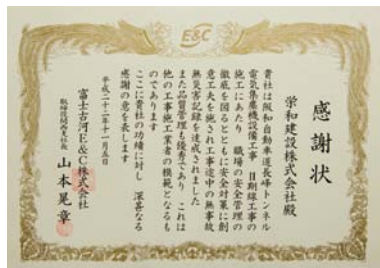 ESC
感謝状
栄和建設株式会社殿
貴社は阪和自動車道長峰トンネル
電気集塵機設備工事 Ⅱ期線工事の
施工にあたり 職場の安全管理の
徹底を図るとともに安全対策に創
意工夫を施され工事途中の無事故
無災害記録を達成されました
また品質管理も優秀であり これは
他の工事施工業者の模範となるも
のであります
ここに貴社の功績に対し 深甚なる
感謝の意を表します
平成二十二年十一月五日
富士古河E&C株式会社
取締役関西支社長 山本晃章